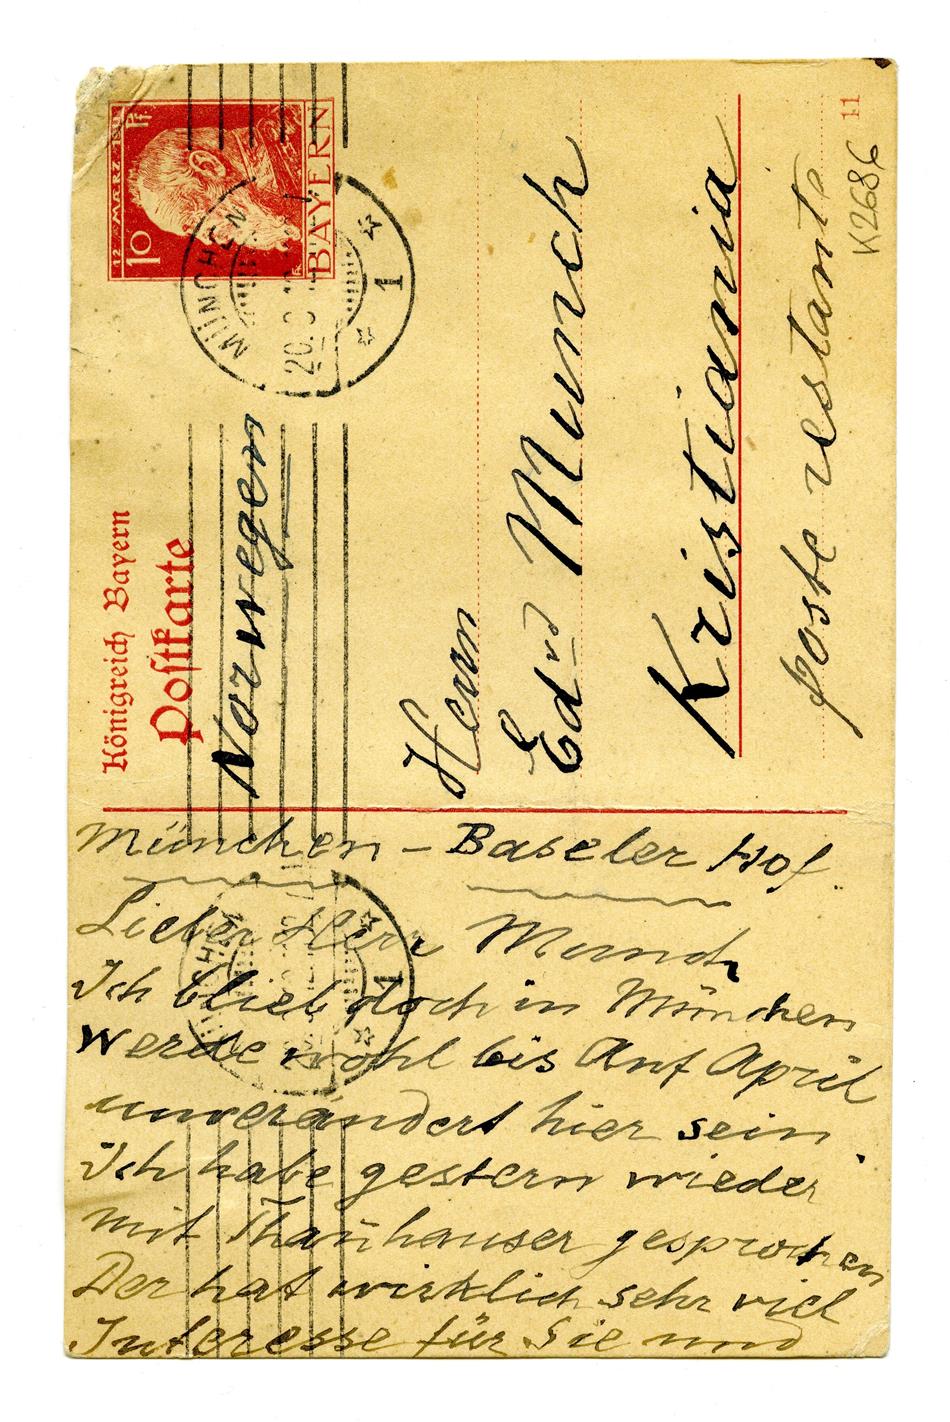 Königreich Bayern
Postkarte
12. MÆRZ. 1911
10 Pf.
BAYERN
MÜNCHEN
1
Norwegen
Herrn
Edvd Munch
Kristiania
poste restante
11
K2686
München – Baseler Hof.
Lieber Herr Munch
Ich blieb doch in München
werde wohl bis Anf April
unverändert hier sein
Ich habe gestern wieder
mit Thanhauser gesprochen
Der hat wirklich sehr viel
Interesse für Sie und